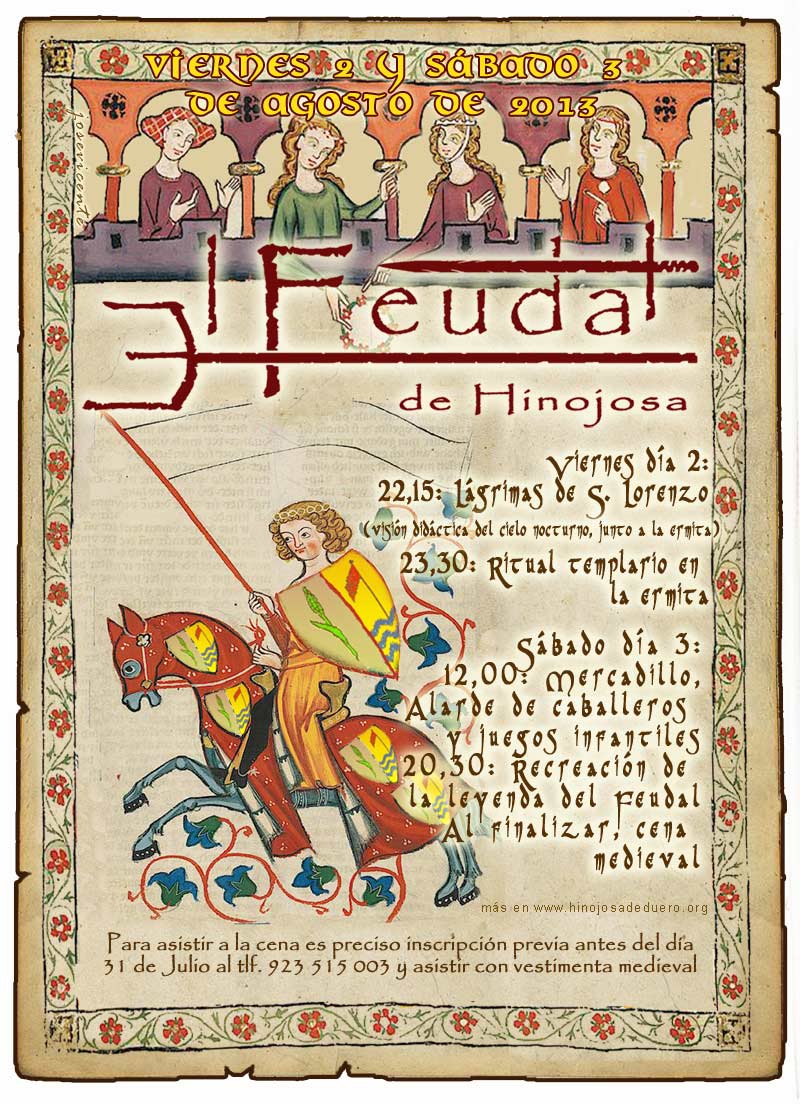 Viernes 2 y Sábado 3
de Agosto de 2013
josevicente
El Feudal
de Hinojosa
Viernes día 2:
22,15: Lágrimas de S. Lorenzo
(visión didáctica del cielo nocturno, junto a la ermita)
23,30: Ritual templario en
la ermita
Sábado día 3:
12,00: Mercadillo,
Alarde de caballeros
y juegos infantiles
20,30: Recreación de
la leyenda del Feudal
Al finalizar, cena
medieval
más en www.hinojosadeduero.org
Para asistir a la cena es preciso inscripción previa antes del día
31 de Julio al tlf. 923 515 003 y asistir con vestimenta medieval